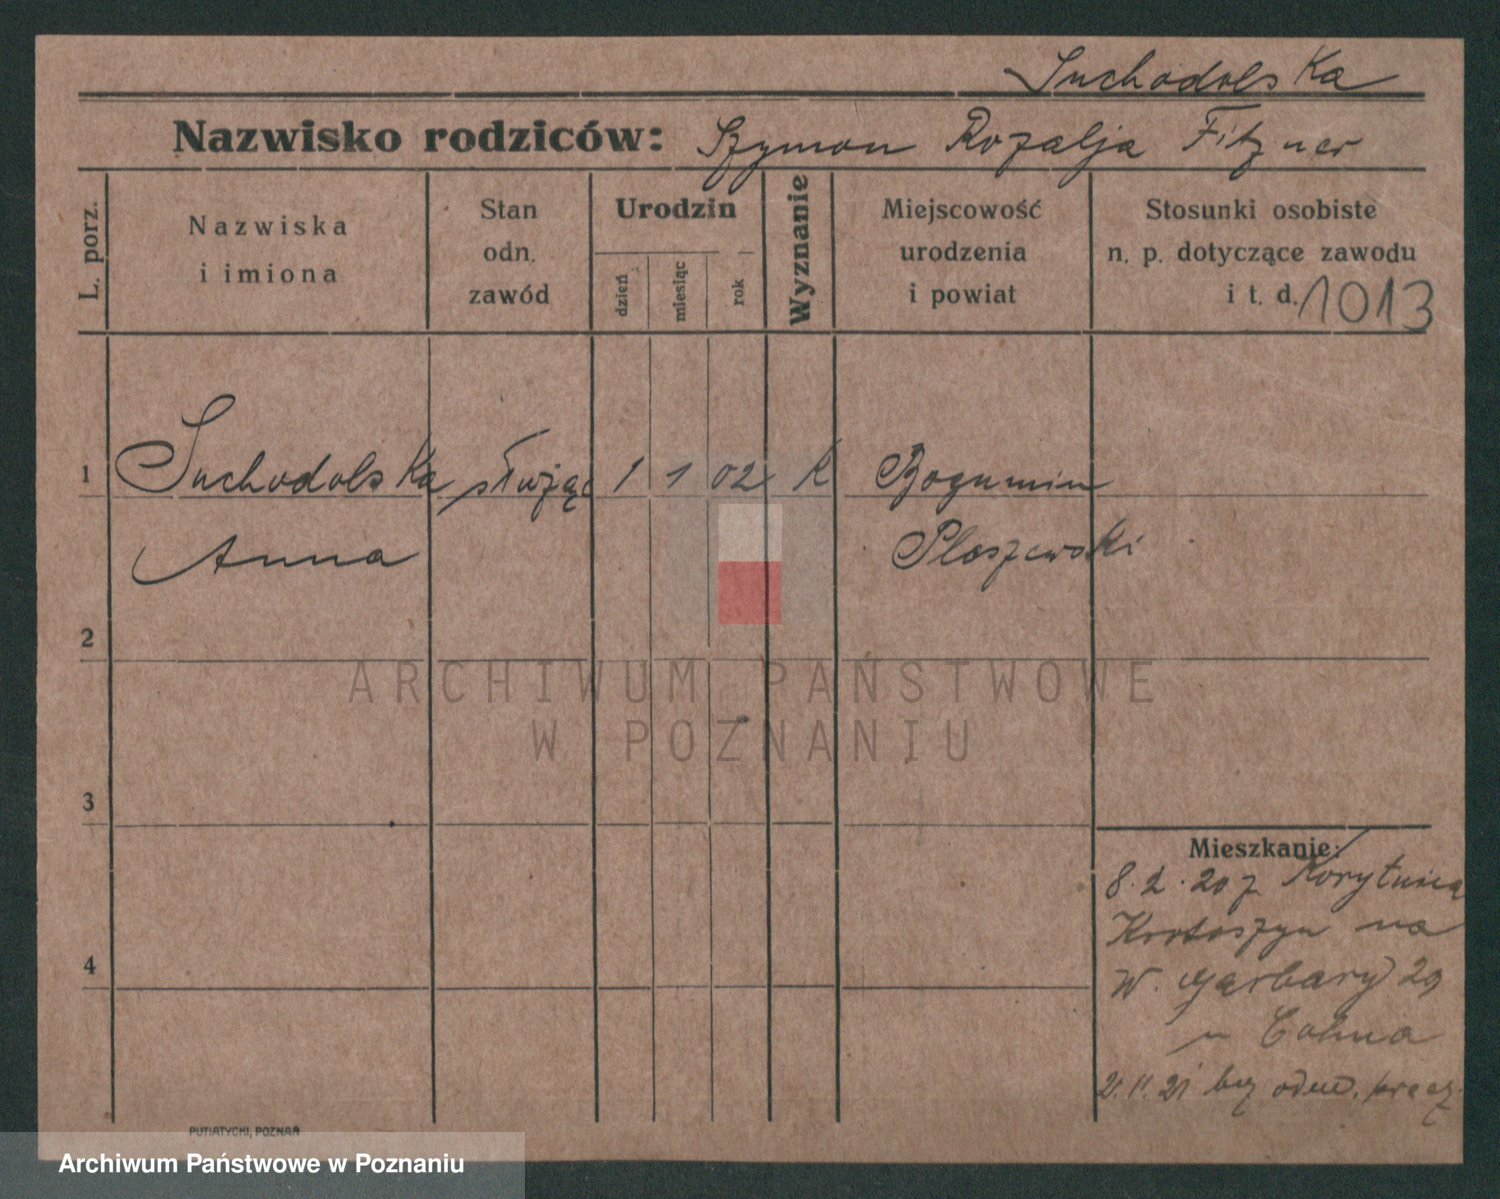 Suchodolska
Nazwisko rodziców: Szymon Rozalja Fitzner
L. porz.
Nazwiska
i imiona
Stan
odn.
zawód
Urodzin
dzień
miesiąc
rok
Wyznanie
Miejscowość
urodzenia
i powiat
Stosunki osobiste
n. p. dotyczące zawodu
i t. d. 1013
1 Suchodolska służąc 1 1 02 K Bogumin
Anna Pleszewski
2
ARCHIWUM PAŃSTWOWE
W POZNANIU
3
Mieszkanie:
8.2.20 z Korytnica
Krotoszyn na
4
W. Garbary 29
u Cohna
21.11.21 bez odm.
PUTIATYCKI, POZNAŃ
Archiwum Państwowe w Poznaniu